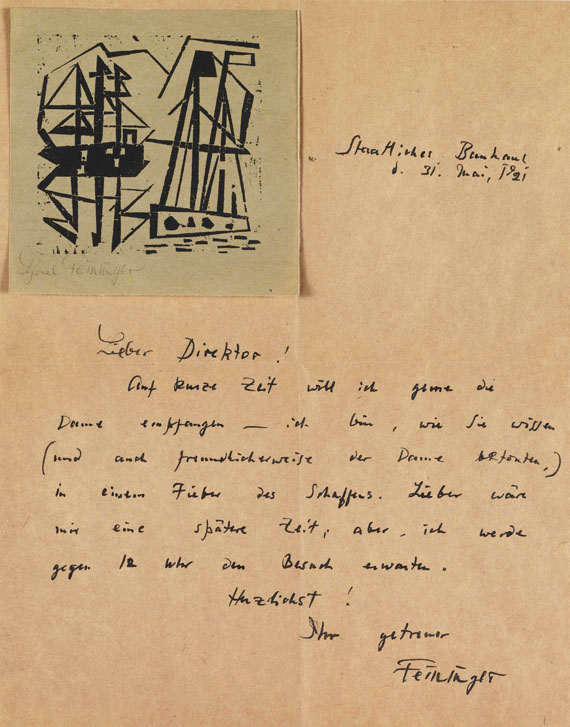 Lyonel Feininger
Staatliches Bauhaus
d. 31. Mai, 1921
Lieber Direktor!
Auf kurze Zeit will ich gerne die
Dame empfangen — ich bin, wie Sie wissen
(und auch freundlicherweise der Dame betonten,)
in einem Fieber des Schaffens. Lieber wäre
mir eine spätere Zeit; aber, ich werde
gegen 12 Uhr den Besuch erwarten.
Herzlichst!
Ihr getreuer
Feininger